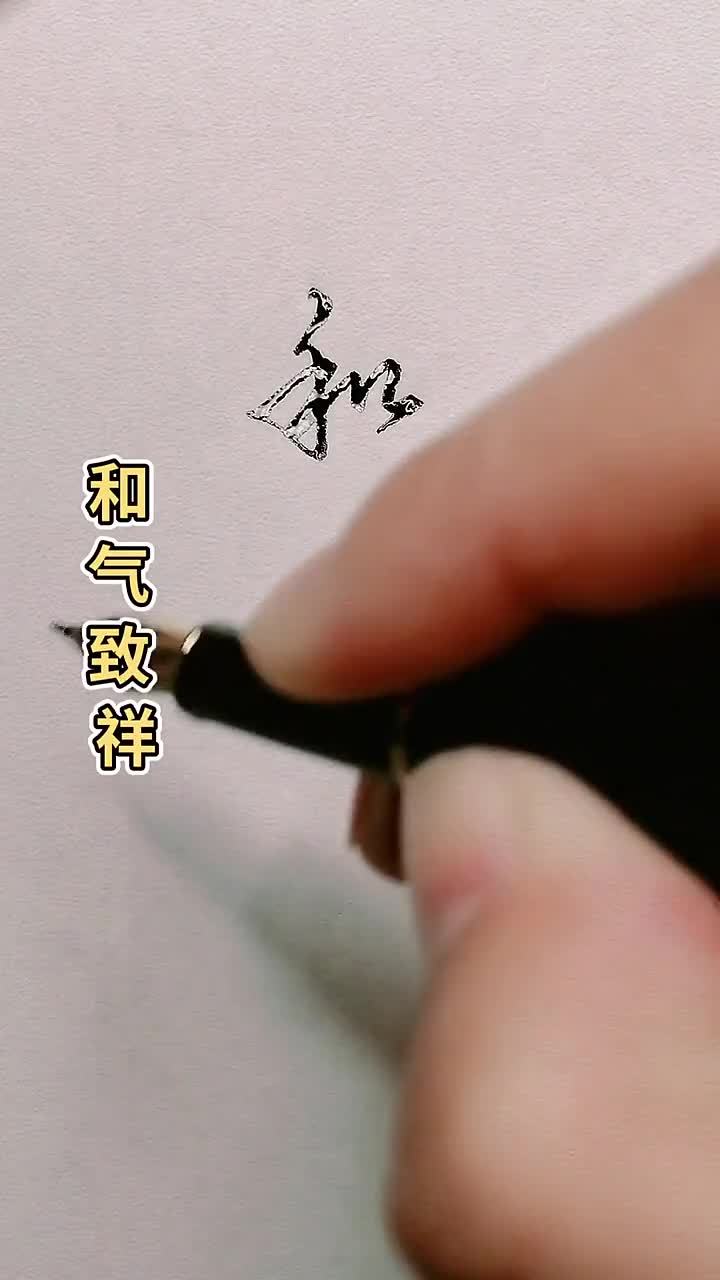 和
和气致祥